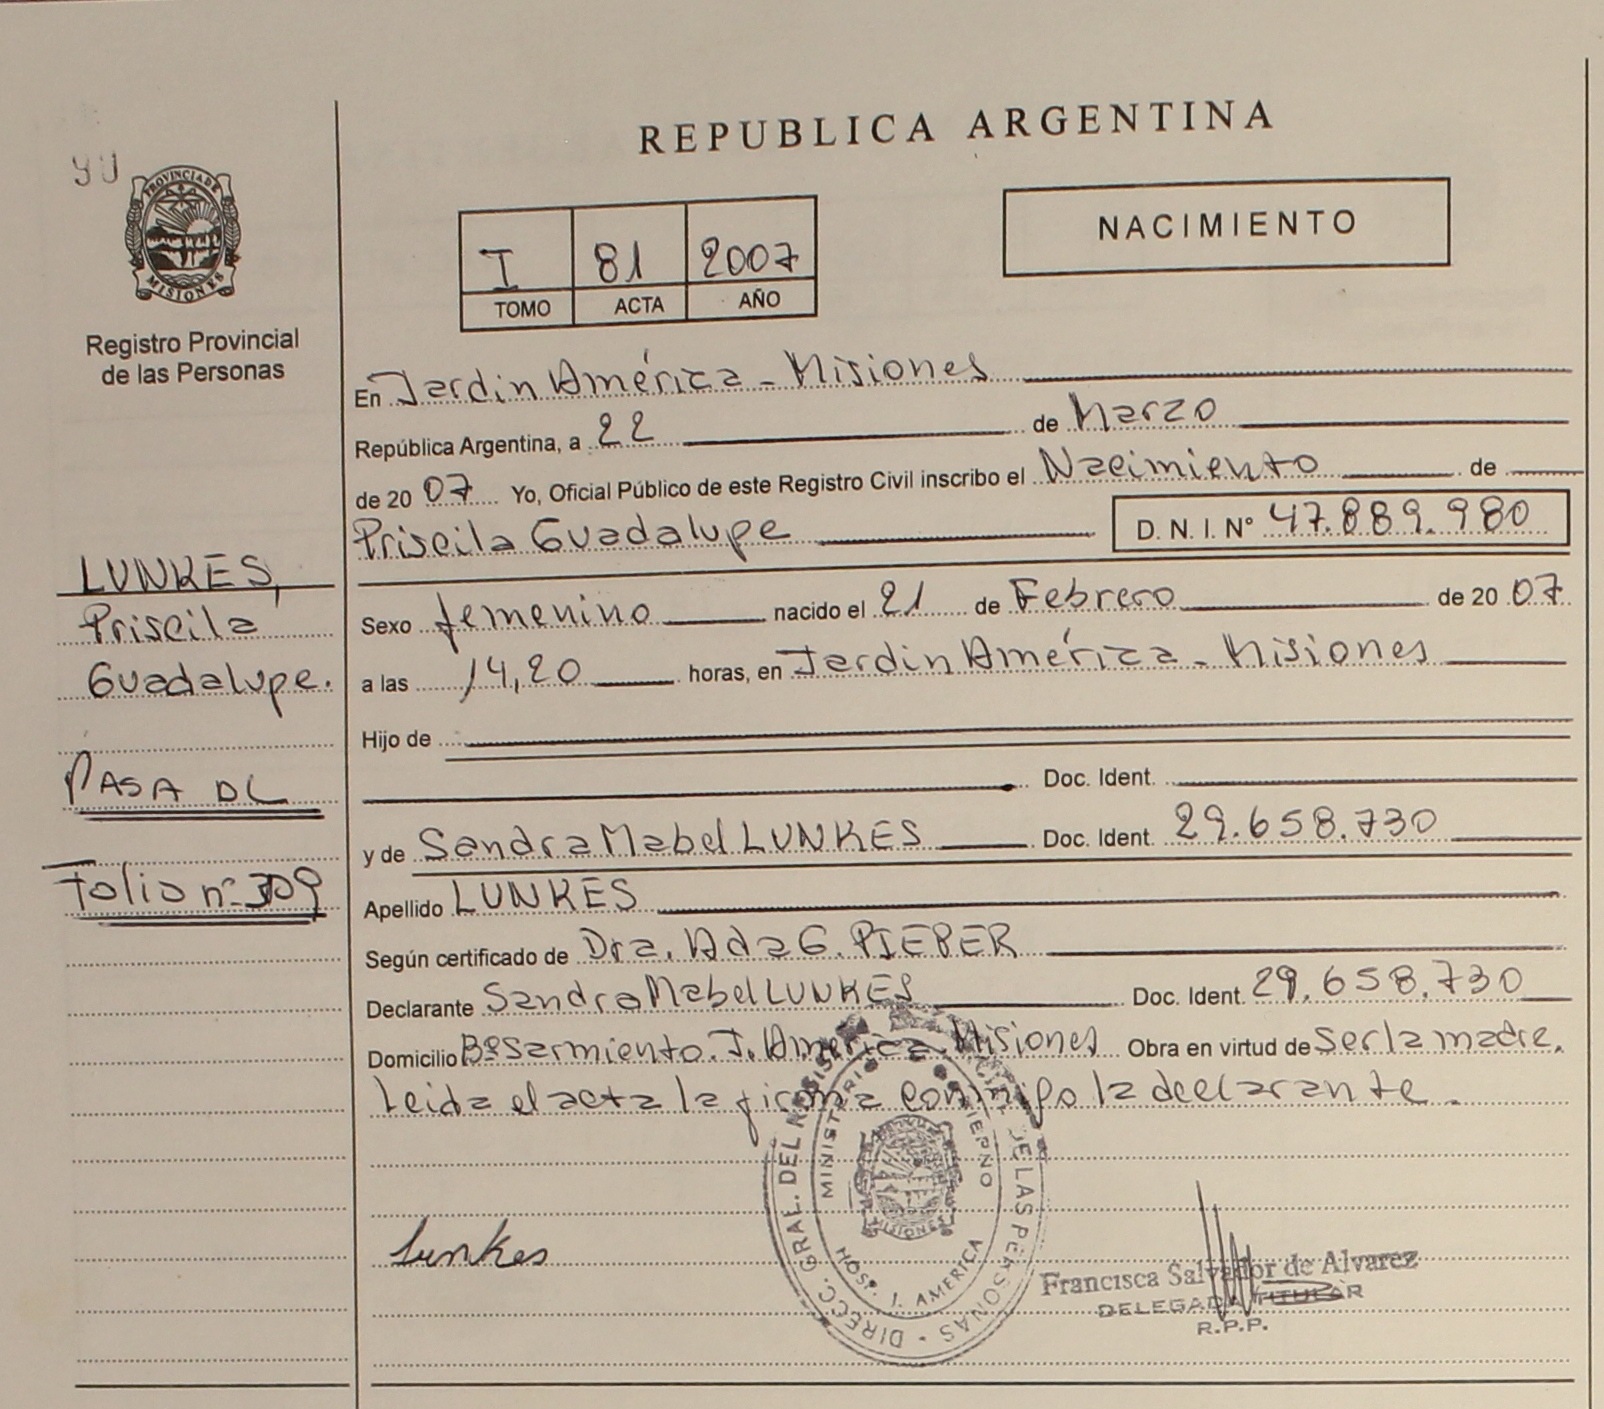 REPUBLICA ARGENTINA
90
PROVINCIA DE
MISIONES
Registro Provincial
de las Personas
NACIMIENTO
I 81 2007
TOMO ACTA AÑO
En Jardin América - Misiones
República Argentina, a 22 de Marzo
de 20 07 Yo, Oficial Público de este Registro Civil inscribo el Nacimiento de
Priscila Guadalupe D. N. I. N° 47.889.980
LUNKES,
Priscila
Guadalupe.
PASA DL
Folio nº 309
Sexo femenino nacido el 21 de Febrero de 20 07
a las 14,20 horas, en Jardin América - Misiones
Hijo de
Doc. Ident.
y de Sandra Mabel LUNKES Doc. Ident. 29.658.730
Apellido LUNKES
Según certificado de Dra. Ada G. PIEPER
Declarante Sandra Mabel LUNKES Doc. Ident. 29.658.730
Domicilio Bº Sarmiento. J. América. Misiones Obra en virtud de ser la madre.
Leida el acta la firma conmigo la declarante.
DIRECC. GRAL. DEL DE LAS PERSONAS
MINISTERIO GOBIERNO
MISIONES
HOSP. J. AMERICA
Lunkes
Francisca Salvador de Alvarez
DELEGADA TITULAR
R.P.P.